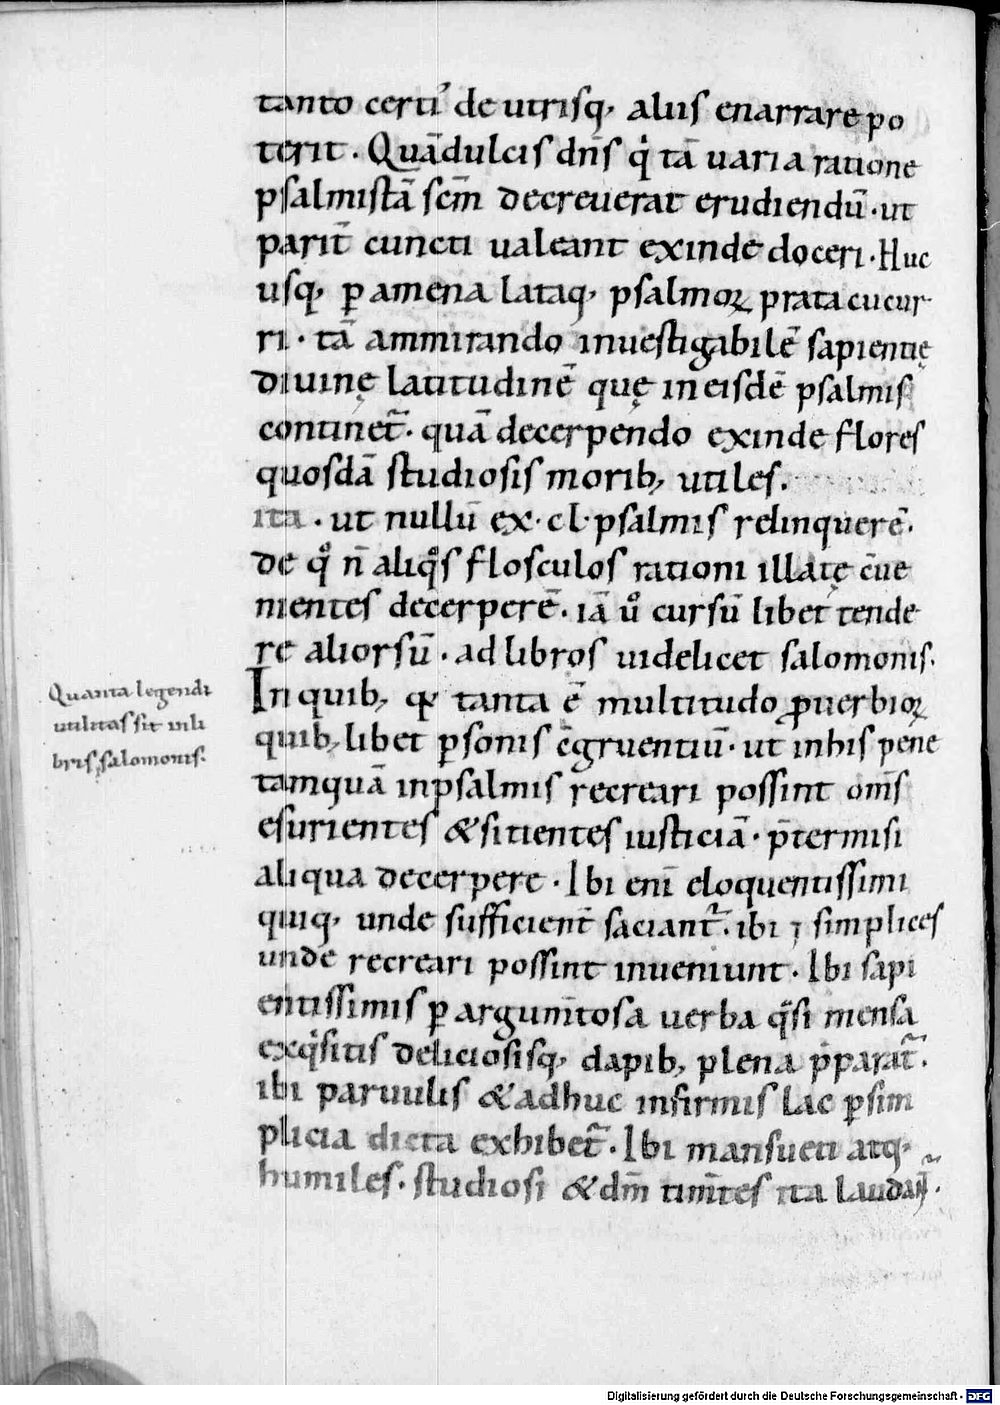 tanto certi᷒ de utrisq, aliis enarrare po
terit. Quā dulcis dn̄s qͥ tā uaria ratione
psalmistā scm̄ decreuerat erudiendū. ut
parit̄ cuncti ualeant exinde doceri. Huc
usq, ꝑ amena lataq, psalmoꝝ prata cucur
ri. tā ammirando inuestigabilē sapientię
diuinę latitudinē quę in eisdē psalmis
continet᷑. quā decerpendo exinde flores
quosdā studiosis morib, utiles.
ita. ut nullū ex. cl. psalmis relinquerē.
de qͦ n̄ aliqͦs flosculos rationi illatę c̄ue
nientes decerperē. iā uͦ cursū libet tende
re aliorsū. ad libros uidelicet salomonis.
Quanta legendi
utilitas sit in li
bris salomonis.
In quib, qꝛ tanta ē multitudo ꝓuerbioꝝ
quib, libet ꝑsonis c̄gruentiū. ut in his pene
tamquā in psalmis recreari possint om̄s
esurientes & sitientes iusticiā. p̄termisi
aliqua decerpere. Ibi eni̅ eloquentissimi
quiq, unde sufficient̄ sacient᷑. ibi ⁊ simplices
unde recreari possint inueniunt. Ibi sapi
entissimis ꝑ argum̄tosa uerba qͣsi mensa
exqͥsitis deliciosisq, dapib, plena p̄parat᷑.
ibi paruulis & adhuc infirmis lac ꝑ sim
plicia dicta exhibet᷑. Ibi mansueti atq,
humiles. studiosi & dm̄ tim̄tes ita laudant᷑.
Digitalisierung gefördert durch die Deutsche Forschungsgemeinschaft - DFG